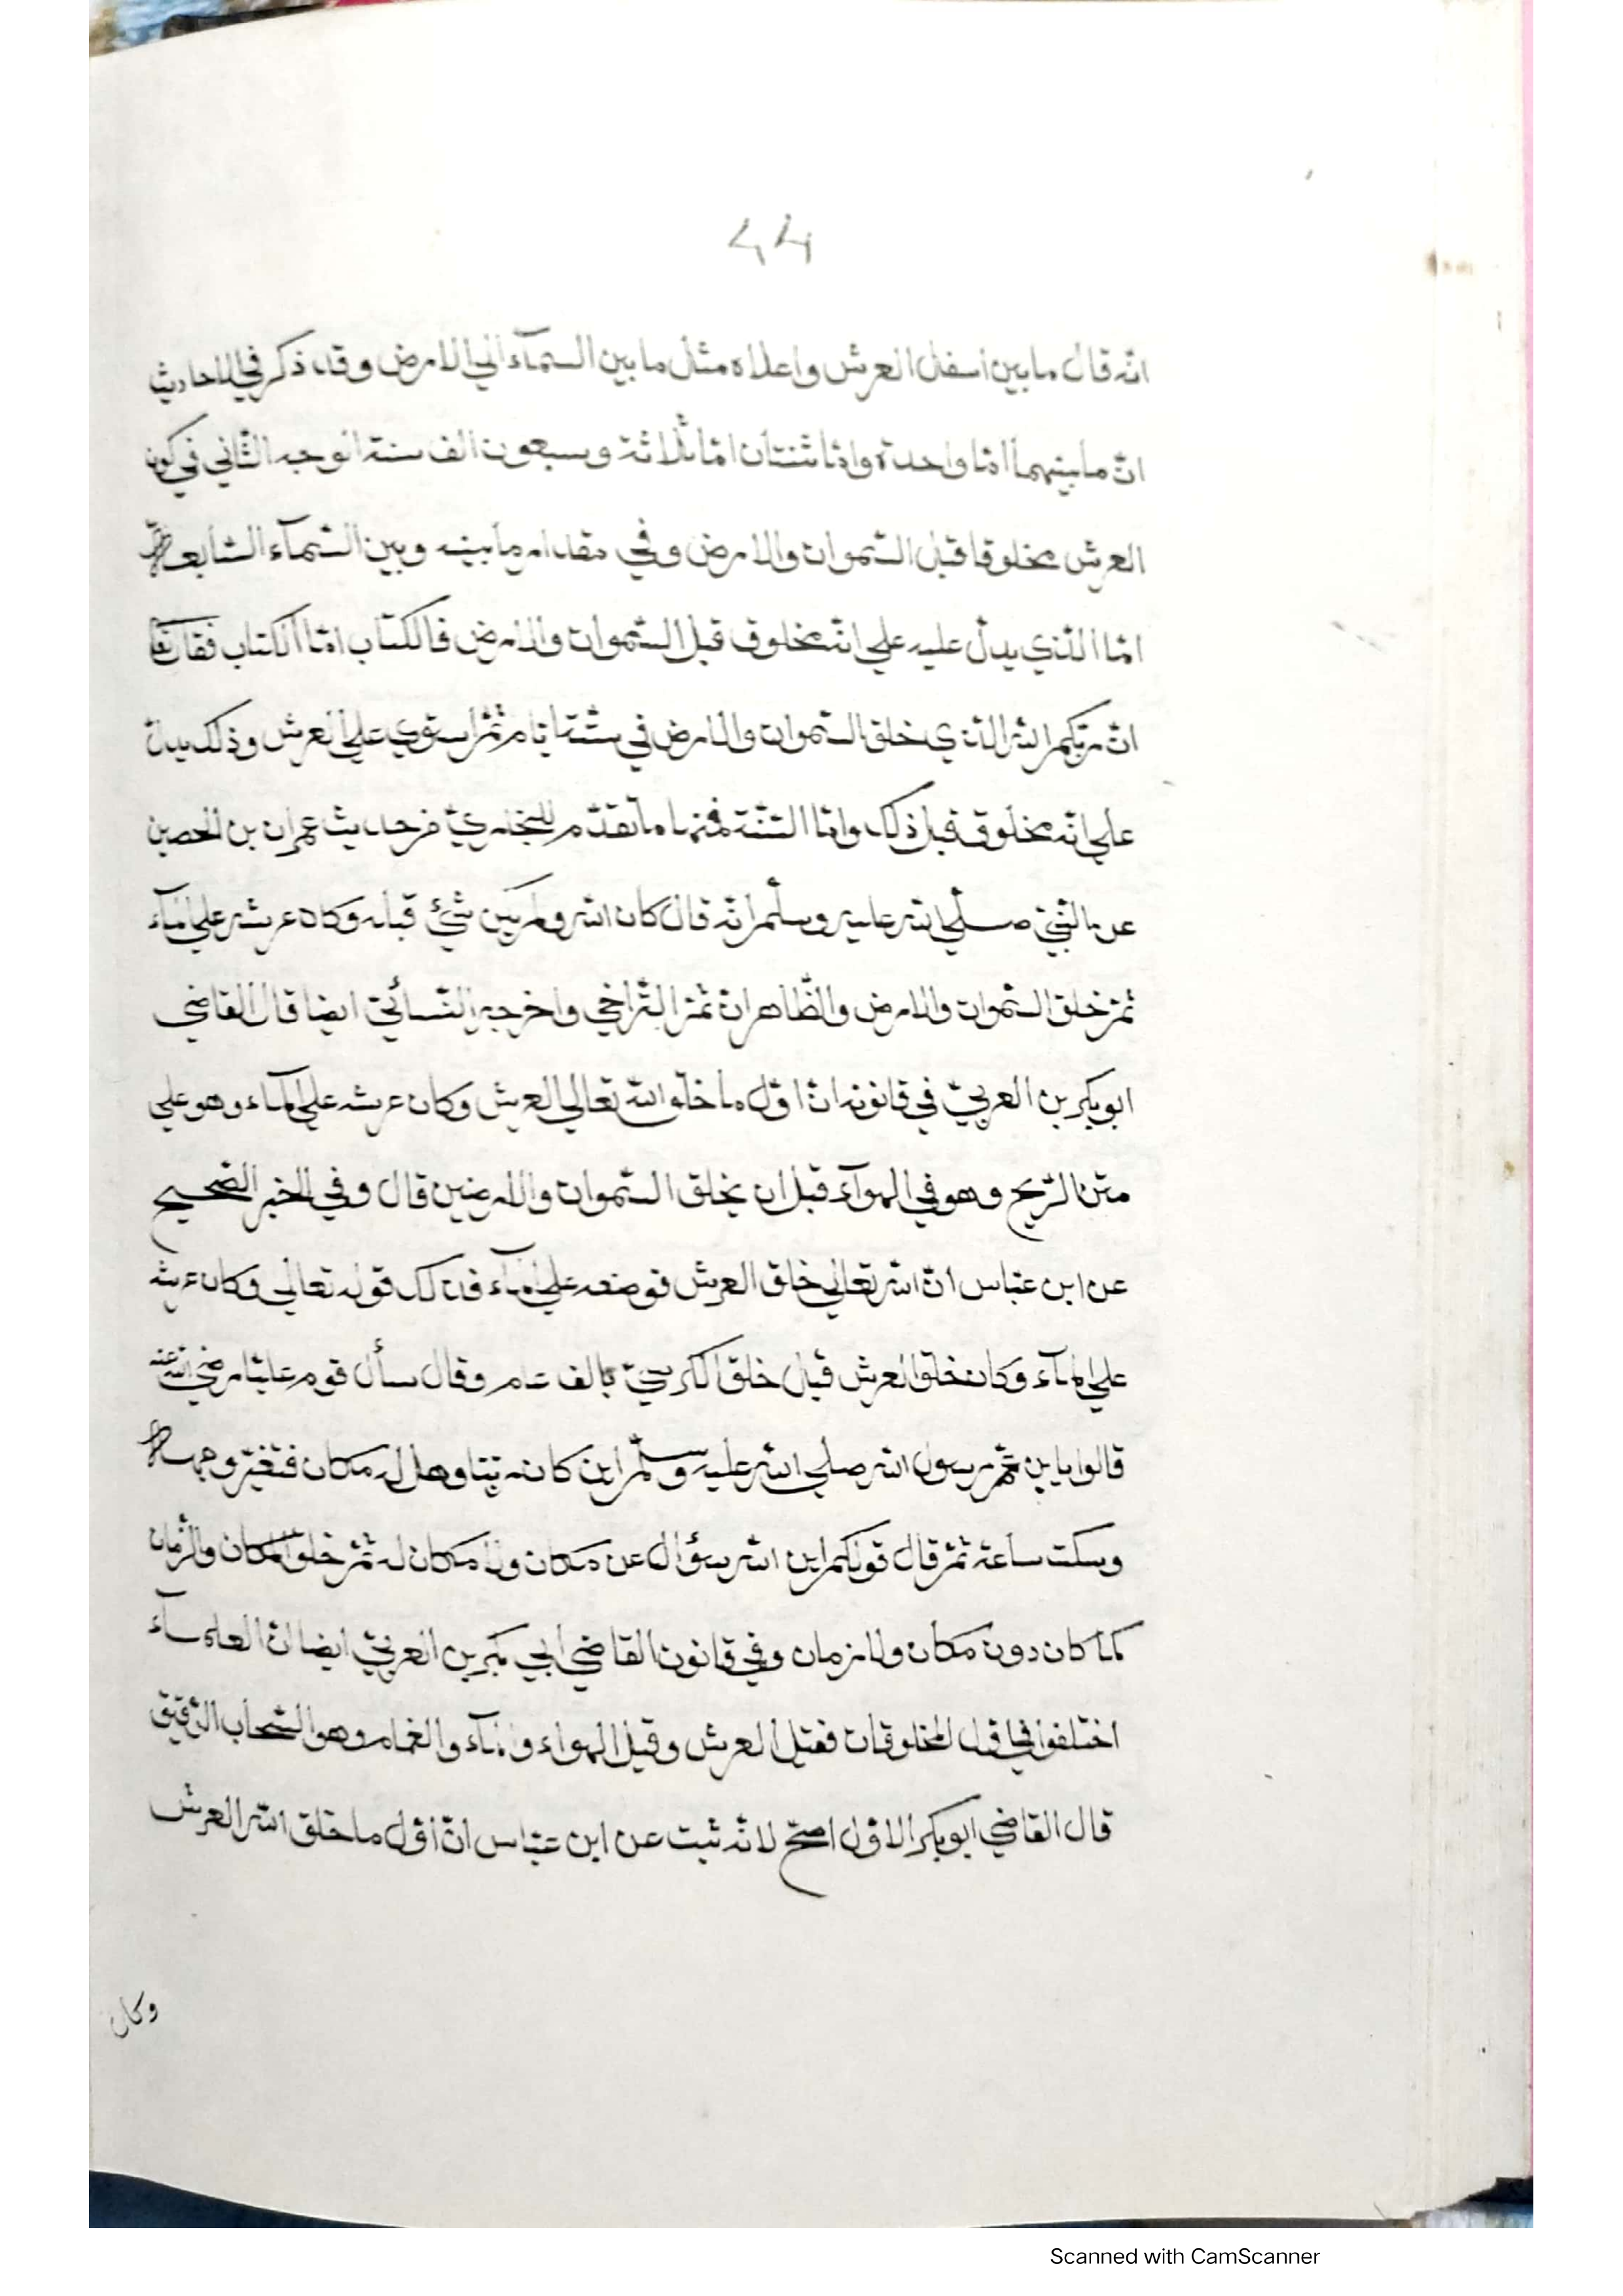 ٤٤
انّه قال ما بين اسفل العرش واعلاه مثل ما بين السمآء الي الارض وقد ذكر في الاحاديث
انّ ما بينهما امّا واحدة وامّا ثنتان امّا ثلاثة وسبعون الف سنة الوجه الثّاني في كون
العرش مخلوقا قبل السّموات والارض وفي مقدار ما بينه وبين السّمآء السّابعة
امّا الّذي يدلّ عليه علي انّه مخلوق قبل السّموات والارض فالكتاب امّا الكتاب فقال تعا
انّ ربّكم الله الّذي خلق السّموات والارض في ستّة ايّام ثمّ استوي علي العرش وذلك يدلّ
علي انّه مخلوق قبل ذلك وامّا السّنّة فمنها ما تقدّم للبخاريّ من حديث عمران بن الحصين
عن النّبيّ صلّي الله عليه وسلّم انّه قال كان الله ولم يكن شيئ قبله وكان عرشه علي المآء
ثمّ خلق السّموات والارض والظّاهر انّ ثمّ التّراخي واخرجه النّسائيّ ايضا قال القاضي
ابو بكر بن العربيّ في قانونه انّ اوّل ما خلق الله تعالي العرش وكان عرشه علي المآء وهو علي
متن الرّيح وهو في الهوآء قبل ان يخلق السّموات والارضين قال وفي الخبر الصّحيح
عن ابن عبّاس انّ الله تعالي خلق العرش فوضعه علي المآء فذلك قوله تعالي وكان عرشه
علي المآء وكان خلق العرش قبل خلق الكرسيّ بالف عام وقال سأل قوم عليّا رضي الله عنه
قالوا يا بن عمّ رسول الله صلي الله عليه وسلّم اين كان ربّنا وهل له مكان فتغيّر وجهه
وسكت ساعة ثمّ قال قولكم اين الله سؤال عن مكان ولا مكان له ثمّ خلق المكان والزّمان
كما كان دون مكان ولا زمان وفي قانون القاضي ابي بكر بن العربيّ ايضا انّ العلمآء
اختلفوا في اوّل المخلوقات فقيل العرش وقيل الهواء والمآء والغمام وهو السّحاب الرّقيق
قال القاضي ابو بكر الاوّل اصحّ لانّه ثبت عن ابن عبّاس انّ اوّل ما خلق الله العرش
وكان
Scanned with CamScanner